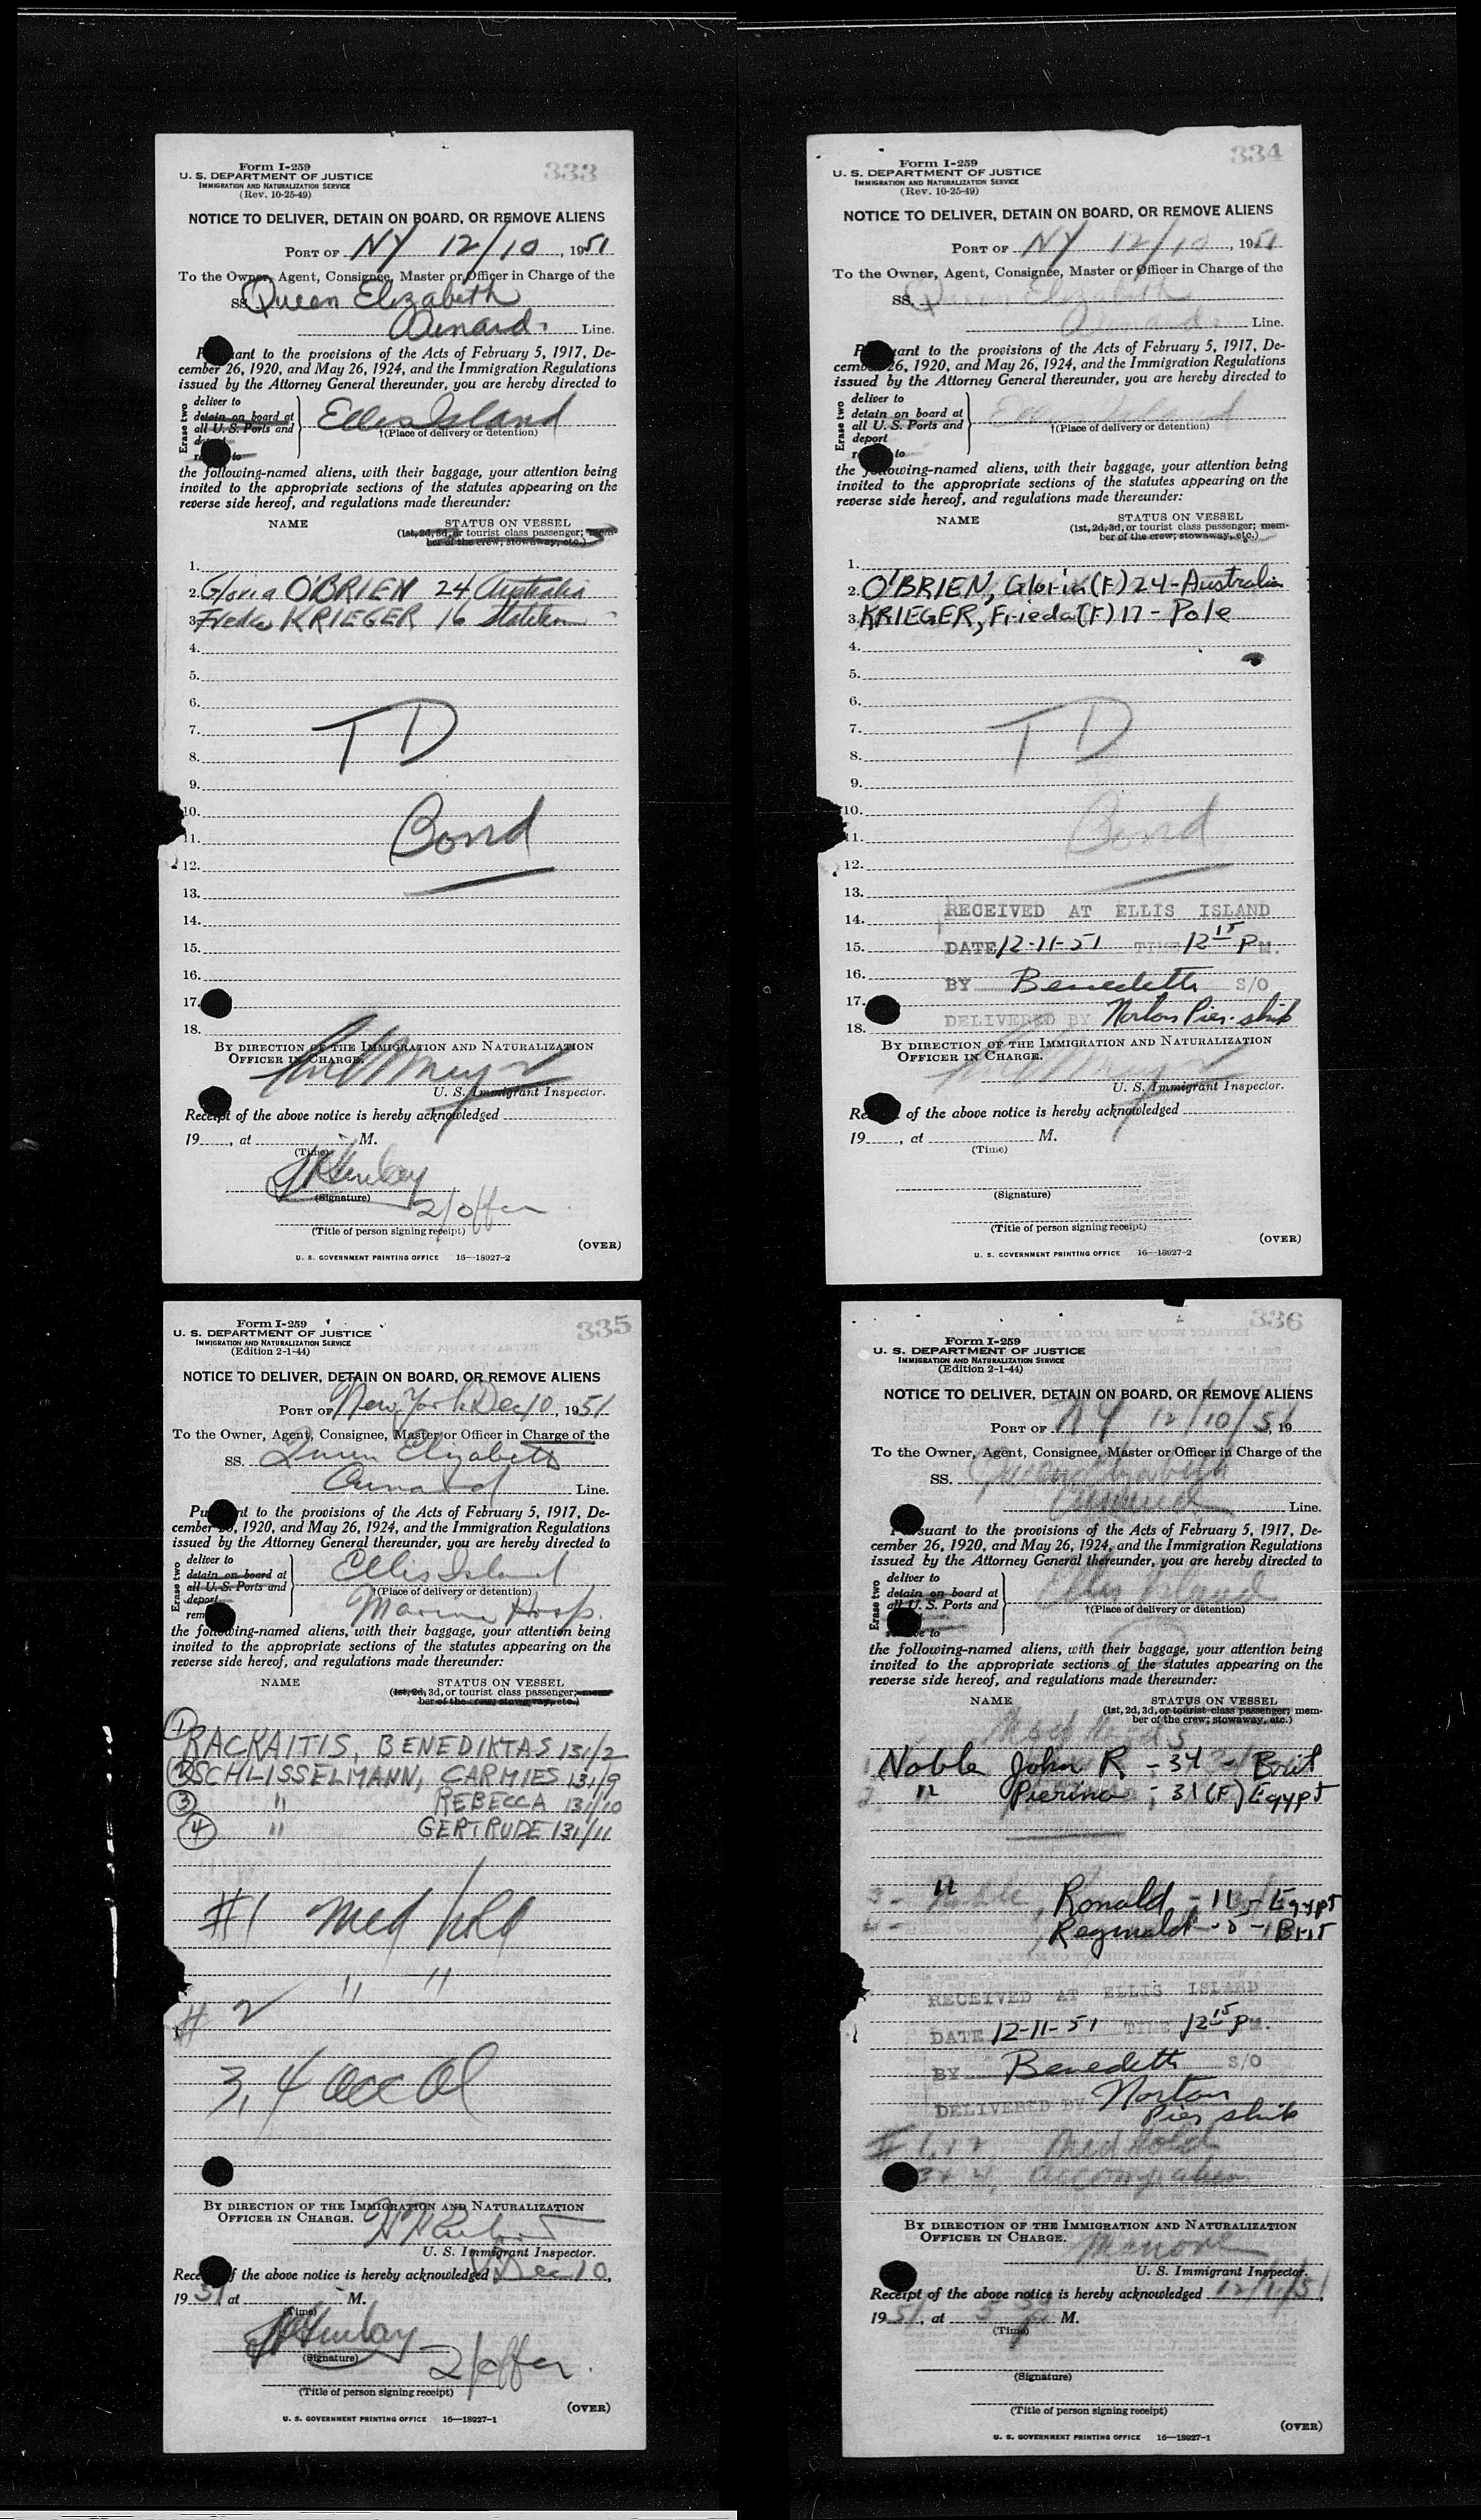 333
Form I-259
U. S. DEPARTMENT OF JUSTICE
IMMIGRATION AND NATURALIZATION SERVICE
(Rev. 10-25-49)
NOTICE TO DELIVER, DETAIN ON BOARD, OR REMOVE ALIENS
PORT OF NY 12/10, 1951
To the Owner, Agent, Consignee, Master or Officer in Charge of the
SS Queen Elizabeth
Cunard. Line.
ant to the provisions of the Acts of February 5, 1917, De-
cember 26, 1920, and May 26, 1924, and the Immigration Regulations
issued by the Attorney General thereunder, you are hereby directed to
Erase two
deliver to
detain on board at
all U. S. Ports and
Ellis Island
†(Place of delivery or detention)
to
the following-named aliens, with their baggage, your attention being
invited to the appropriate sections of the statutes appearing on the
reverse side hereof, and regulations made thereunder:
NAME STATUS ON VESSEL
(1st, 2d, 3d, or tourist class passenger; mem-
ber of the crew; stowaway, etc.)
1.
2. Gloria O'BRIEN 24 Australia
3. KRIEGER 16
4.
5.
6.
7. T D
8.
9.
10.
11. Bond
12.
13.
14.
15.
16.
17.
18.
BY DIRECTION OF THE IMMIGRATION AND NATURALIZATION
OFFICER IN CHARGE.
U. S. Immigrant Inspector.
Receipt of the above notice is hereby acknowledged
19 , at M.
(Time)
(Signature)
2/offer
(Title of person signing receipt)
(OVER)
U. S. GOVERNMENT PRINTING OFFICE 16—18927-2
334
Form I-259
U. S. DEPARTMENT OF JUSTICE
IMMIGRATION AND NATURALIZATION SERVICE
(Rev. 10-25-49)
NOTICE TO DELIVER, DETAIN ON BOARD, OR REMOVE ALIENS
PORT OF NY 12/10, 1951
To the Owner, Agent, Consignee, Master or Officer in Charge of the
SS. Queen Elizabeth
Cunard. Line.
ant to the provisions of the Acts of February 5, 1917, De-
cember 26, 1920, and May 26, 1924, and the Immigration Regulations
issued by the Attorney General thereunder, you are hereby directed to
Erase two
deliver to
detain on board at
all U. S. Ports and
deport
Ellis Island
†(Place of delivery or detention)
to
the following-named aliens, with their baggage, your attention being
invited to the appropriate sections of the statutes appearing on the
reverse side hereof, and regulations made thereunder:
NAME STATUS ON VESSEL
(1st, 2d, 3d, or tourist class passenger; mem-
ber of the crew; stowaway, etc.)
1.
2. O'BRIEN, Gloria (F) 24-Australia
3. KRIEGER, Frieda (F) 17 - Pole
4.
5.
6.
7. T D
8.
9.
10.
11. Bond
12.
13.
14. RECEIVED AT ELLIS ISLAND
15. DATE 12-11-51 TIME 12 15 P M.
16. BY Benedetti S/O
17. DELIVERED BY Norton Pier-
18.
BY DIRECTION OF THE IMMIGRATION AND NATURALIZATION
OFFICER IN CHARGE.
U. S. Immigrant Inspector.
Receipt of the above notice is hereby acknowledged
19 , at M.
(Time)
(Signature)
(Title of person signing receipt)
(OVER)
U. S. GOVERNMENT PRINTING OFFICE 16—18927-2
335
Form I-259
U. S. DEPARTMENT OF JUSTICE
IMMIGRATION AND NATURALIZATION SERVICE
(Edition 2-1-44)
NOTICE TO DELIVER, DETAIN ON BOARD, OR REMOVE ALIENS
PORT OF New York Dec 10, 1951
To the Owner, Agent, Consignee, Master or Officer in Charge of the
SS. Queen Elizabeth
Cunard Line.
Pursuant to the provisions of the Acts of February 5, 1917, De-
cember 26, 1920, and May 26, 1924, and the Immigration Regulations
issued by the Attorney General thereunder, you are hereby directed to
Erase two
deliver to
detain on board at
all U. S. Ports and
deport
rem
Ellis Island
†(Place of delivery or detention)
Marine Hosp.
the following-named aliens, with their baggage, your attention being
invited to the appropriate sections of the statutes appearing on the
reverse side hereof, and regulations made thereunder:
NAME STATUS ON VESSEL
(1st, 2d, 3d, or tourist class passenger; mem-
ber of the crew; stowaway, etc.)
1 RACKAITIS, BENEDIKTAS 131/2
2 SCHLISSELMANN, CARMIES 131/9
3 " REBECCA 131/10
4 " GERTRUDE 131/11
#1 Med hold
# 2 " "
3, 4 acc
BY DIRECTION OF THE IMMIGRATION AND NATURALIZATION
OFFICER IN CHARGE.
U. S. Immigrant Inspector.
Receipt of the above notice is hereby acknowledged Dec 10,
1951 at M.
(Time)
(Signature)
2/offer.
(Title of person signing receipt)
(OVER)
U. S. GOVERNMENT PRINTING OFFICE 16—18927-1
336
Form I-259
U. S. DEPARTMENT OF JUSTICE
IMMIGRATION AND NATURALIZATION SERVICE
(Edition 2-1-44)
NOTICE TO DELIVER, DETAIN ON BOARD, OR REMOVE ALIENS
PORT OF NY 12/10/51, 19
To the Owner, Agent, Consignee, Master or Officer in Charge of the
SS. Queen Elizabeth
Cunard Line.
Pursuant to the provisions of the Acts of February 5, 1917, De-
cember 26, 1920, and May 26, 1924, and the Immigration Regulations
issued by the Attorney General thereunder, you are hereby directed to
Erase two
deliver to
detain on board at
all U. S. Ports and
Ellis Island
†(Place of delivery or detention)
to
the following-named aliens, with their baggage, your attention being
invited to the appropriate sections of the statutes appearing on the
reverse side hereof, and regulations made thereunder:
NAME STATUS ON VESSEL
(1st, 2d, 3d, or tourist class passenger; mem-
ber of the crew; stowaway, etc.)
Noble John R. - 34 - Brit
" Pierina - 31 (F) Egypt
3- " , Ronald - 11 - Egypt
Reginald - 8 - Brit
RECEIVED AT ELLIS ISLAND
DATE 12-11-51 TIME 12 15 P M.
BY Benedetti S/O
DELIVERED BY Norton
Pier
Med hold
3 + 4,
BY DIRECTION OF THE IMMIGRATION AND NATURALIZATION
OFFICER IN CHARGE.
U. S. Immigrant Inspector.
Receipt of the above notice is hereby acknowledged
1951, at 5 M.
(Time)
(Signature)
(Title of person signing receipt)
(OVER)
U. S. GOVERNMENT PRINTING OFFICE 16—18927-1